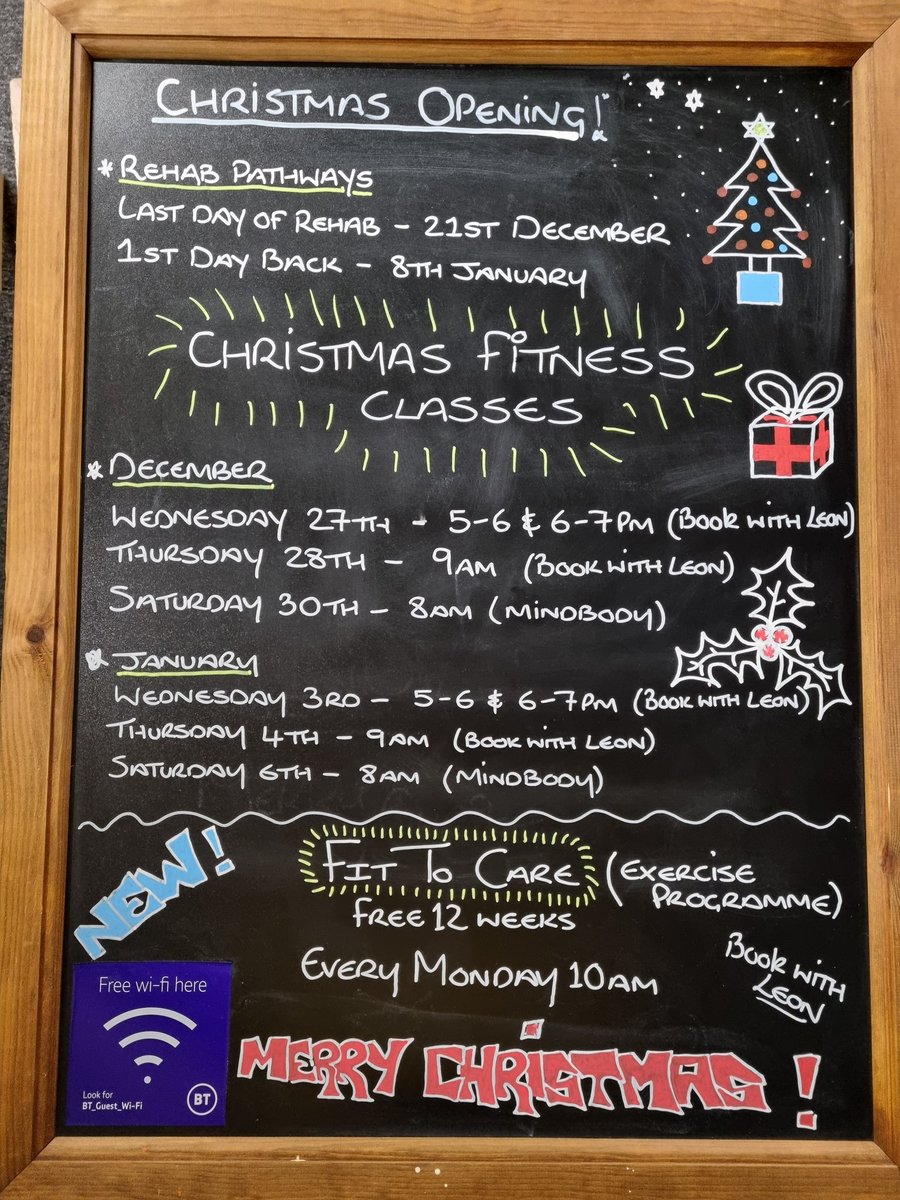 CHRISTMAS OPENING!
* REHAB PATHWAYS
LAST DAY OF REHAB - 21ST DECEMBER
1ST DAY BACK - 8TH JANUARY
CHRISTMAS FITNESS
CLASSES
* DECEMBER
WEDNESDAY 27TH - 5-6 & 6-7PM (BOOK WITH LEON)
THURSDAY 28TH - 9AM (BOOK WITH LEON)
SATURDAY 30TH - 8AM (MINDBODY)
* JANUARY
WEDNESDAY 3RD - 5-6 & 6-7PM (BOOK WITH LEON)
THURSDAY 4TH - 9AM (BOOK WITH LEON)
SATURDAY 6TH - 8AM (MINDBODY)
NEW!
FIT TO CARE (EXERCISE
PROGRAMME)
FREE 12 WEEKS
EVERY MONDAY 10AM
BOOK WITH
LEON
Free wi-fi here
Look for
BT_Guest_Wi-Fi
BT
MERRY CHRISTMAS!